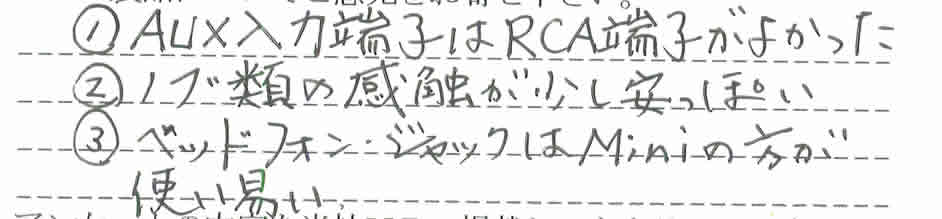 ①AUX入力端子はRCA端子がよかった
②ノブ類の感触が少し安っぽい
③ヘッドフォン・ジャックはMiniの方が
使い易い、